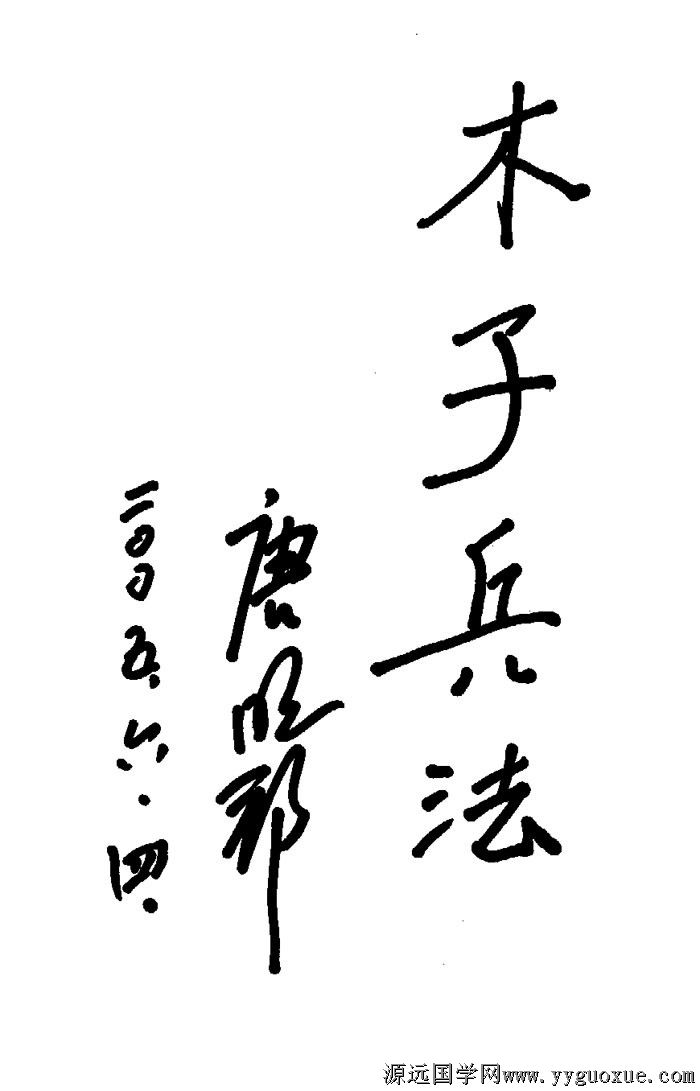 木子兵法
唐明邦
二〇〇五.六.四.
源远国学网www.yyguoxue.com